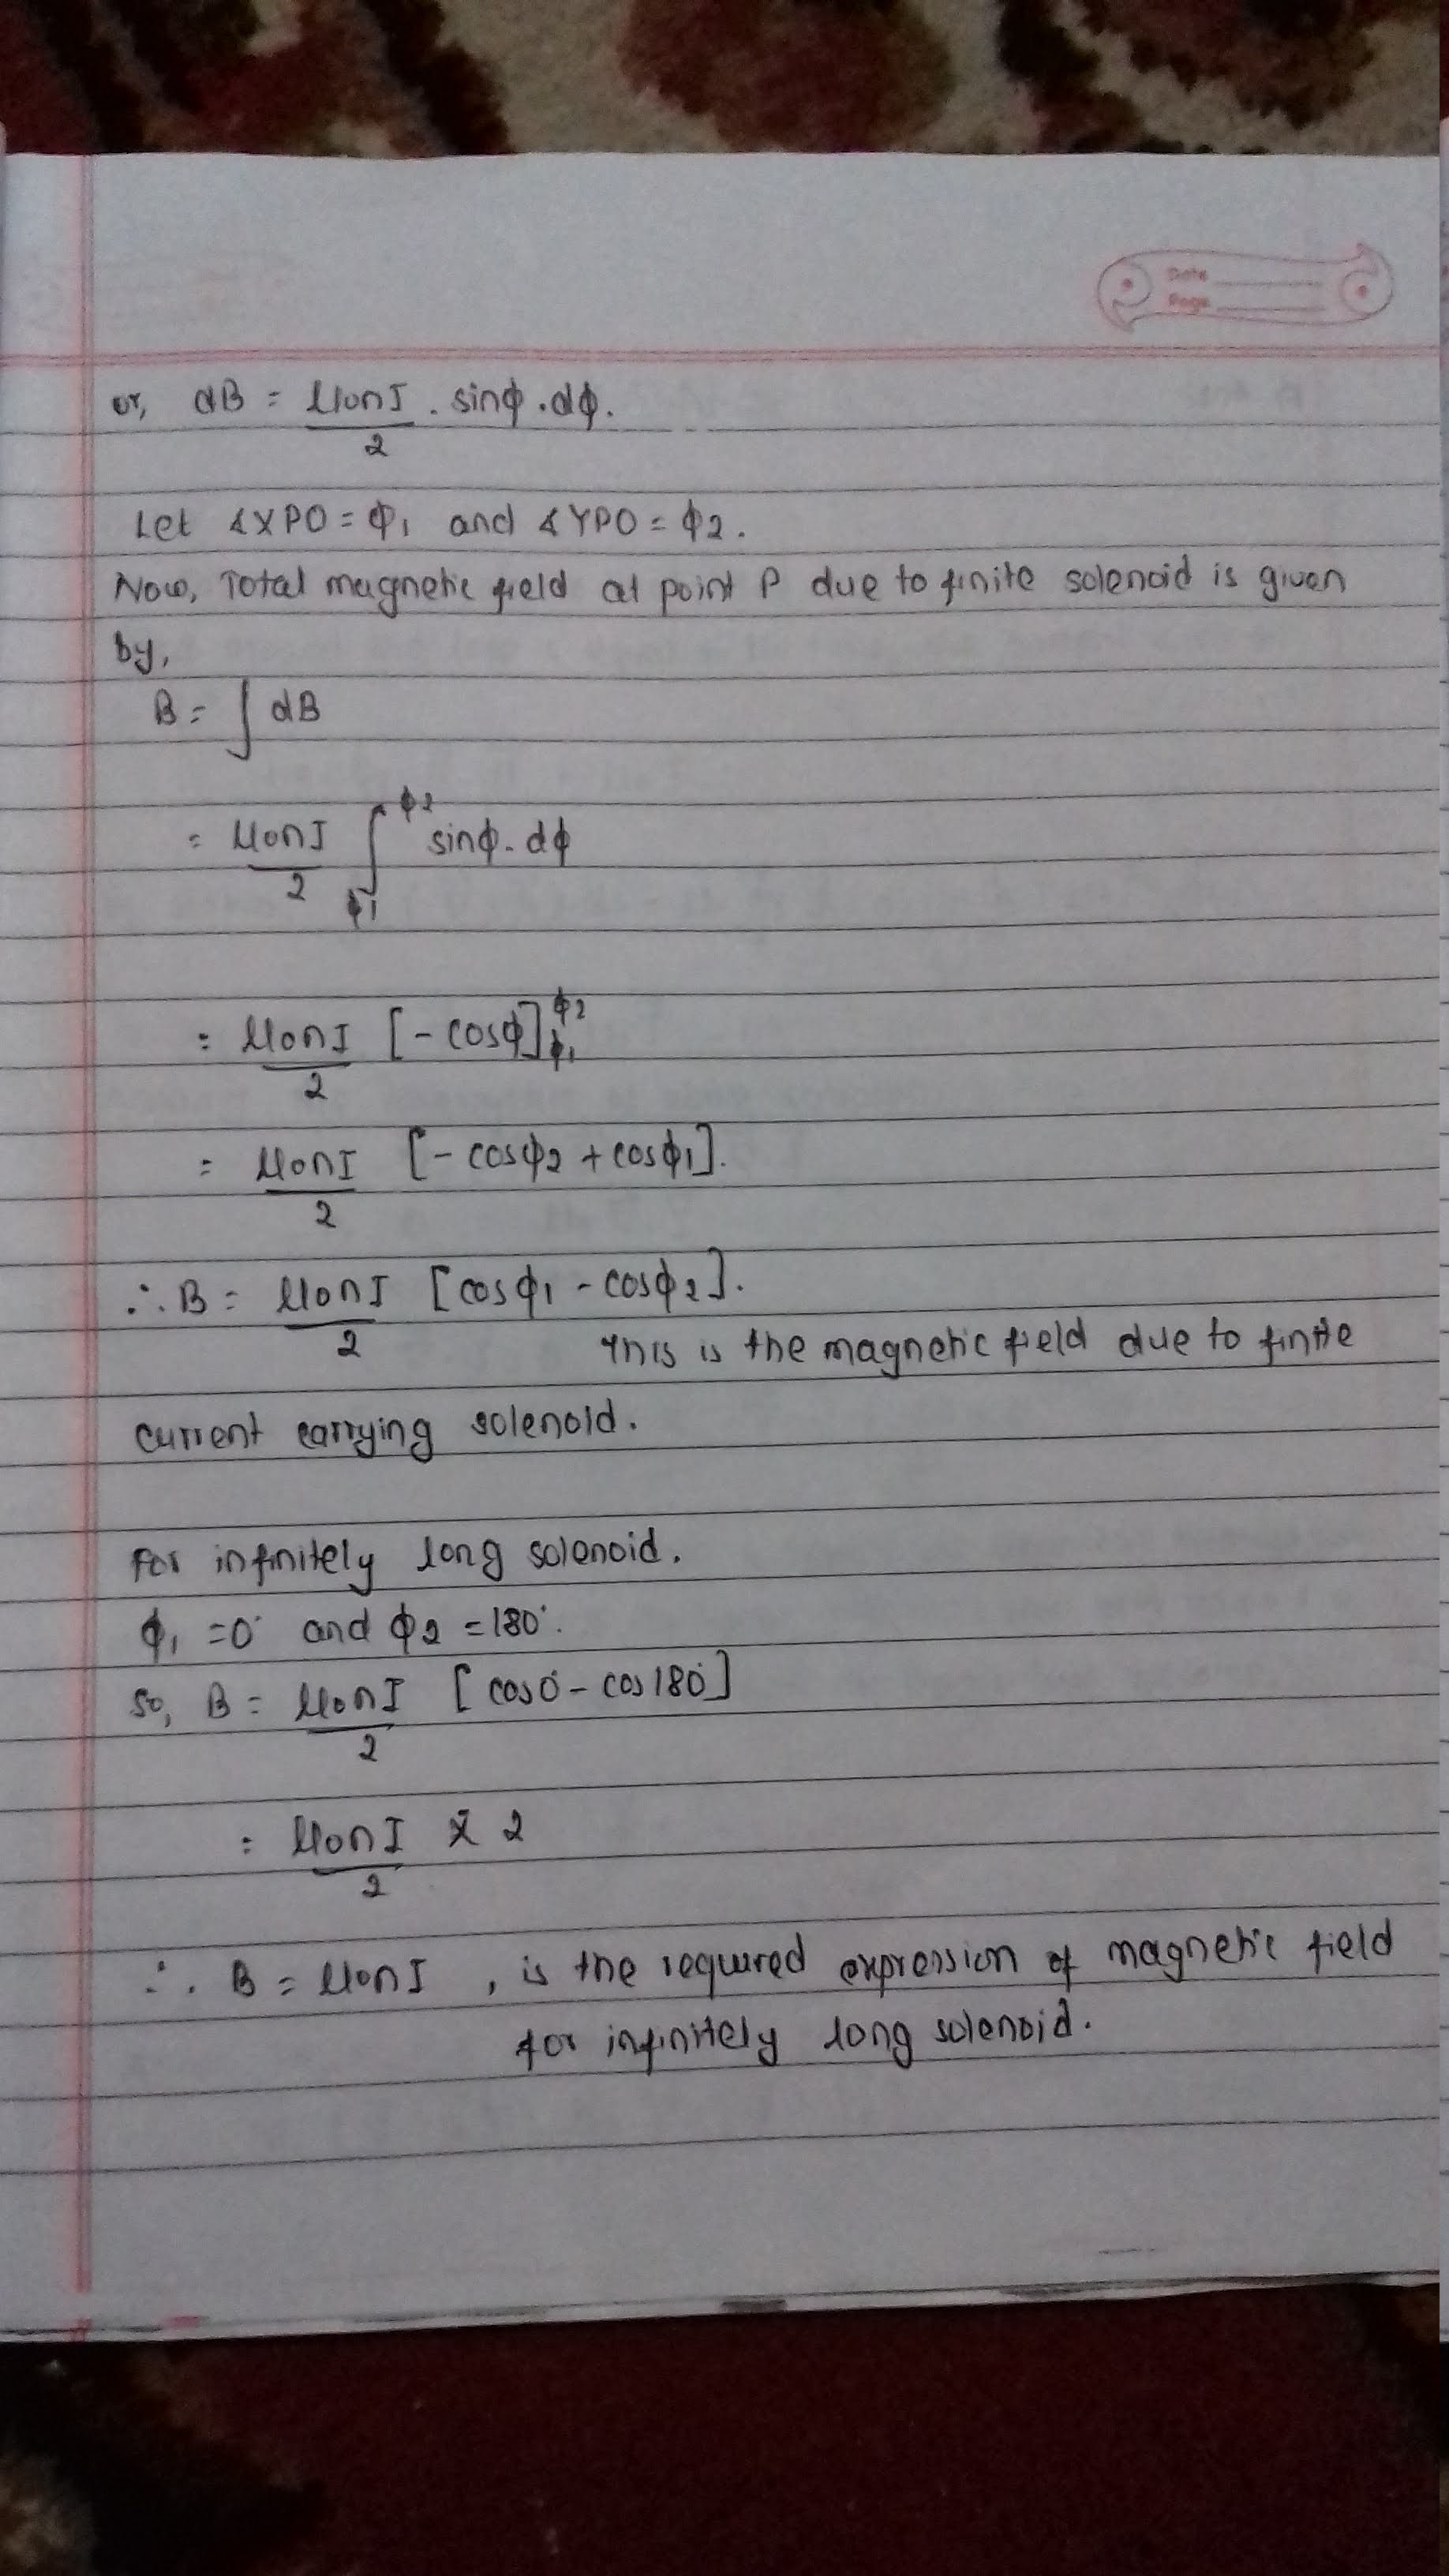 Date
Page
or, dB = μ₀nI/2 . sinϕ.dϕ.
Let ∡XPO = ϕ₁ and ∡YPO = ϕ₂.
Now, Total magnetic field at point P due to finite solenoid is given
by,
B = ∫ dB
= μ₀nI/2 ∫_ϕ₁^ϕ₂ sinϕ.dϕ
= μ₀nI/2 [-cosϕ]_ϕ₁^ϕ₂
= μ₀nI/2 [-cosϕ₂ + cosϕ₁].
∴ B = μ₀nI/2 [cosϕ₁ - cosϕ₂].
This is the magnetic field due to finite
current carrying solenoid.
For infinitely long solenoid.
ϕ₁ = 0° and ϕ₂ = 180°.
so, B = μ₀nI/2 [cos0° - cos180°]
= μ₀nI/2 × 2
∴ B = μ₀nI , is the required expression of magnetic field
for infinitely long solenoid.